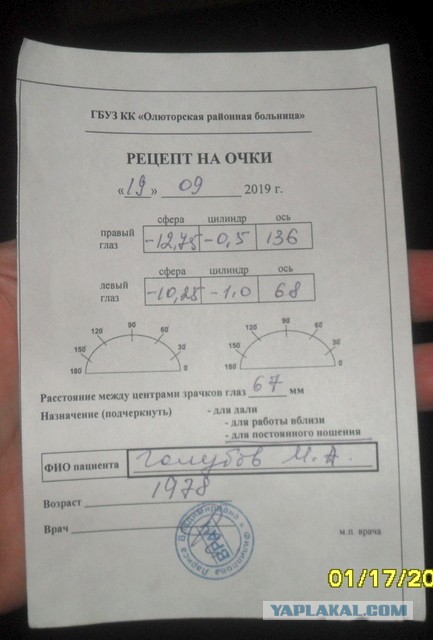 ГБУЗ КК «Олюторская районная больница»
РЕЦЕПТ НА ОЧКИ
«19» 09 2019 г.
сфера цилиндр ось
правый глаз -12,75 -0,5 136
сфера цилиндр ось
левый глаз -10,25 -1,0 68
180 150 120 90 60 30 0
180 150 120 90 60 30 0
Расстояние между центрами зрачков глаз 67 мм
Назначение (подчеркнуть) - для дали
- для работы вблизи
- для постоянного ношения
ФИО пациента Голубов М.А.
Возраст 1978
Врач м.п. врача
Филиппова Лариса Владимировна
ВРАЧ
01/17/20
YAPLAKAL.COM